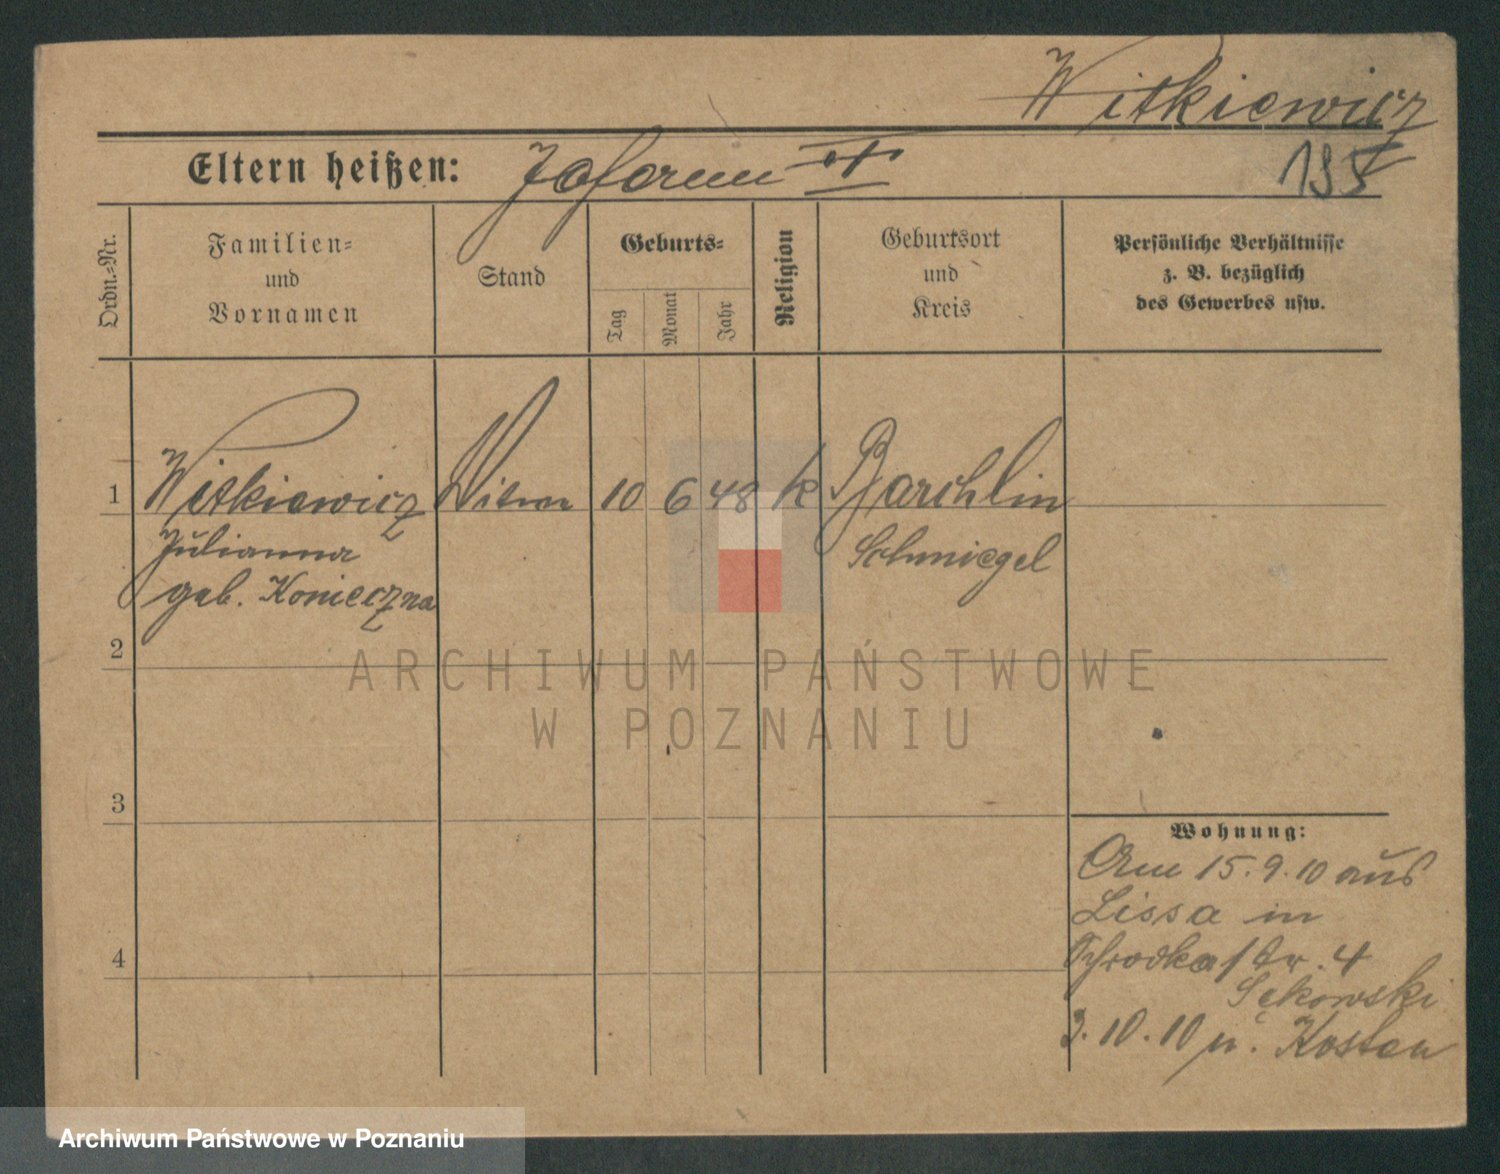 Witkiewicz
Eltern heißen:
195
Ordn.-Nr.
Familien-
und
Vornamen
Stand
Geburts-
Tag
Monat
Jahr
Religion
Geburtsort
und
Kreis
Persönliche Verhältnisse
z. B. bezüglich
des Gewerbes usw.
1
Witkiewicz
Julianna
geb. Konieczna
10
6
48
k
Barchlin
Schmiegel
2
ARCHIWUM PAŃSTWOWE
W POZNANIU
3
Wohnung:
Am 15.9.10 aus
Lissa in
Schrodkastr. 4
Sękowski
3.10.10 n. Kosten
4
Archiwum Państwowe w Poznaniu